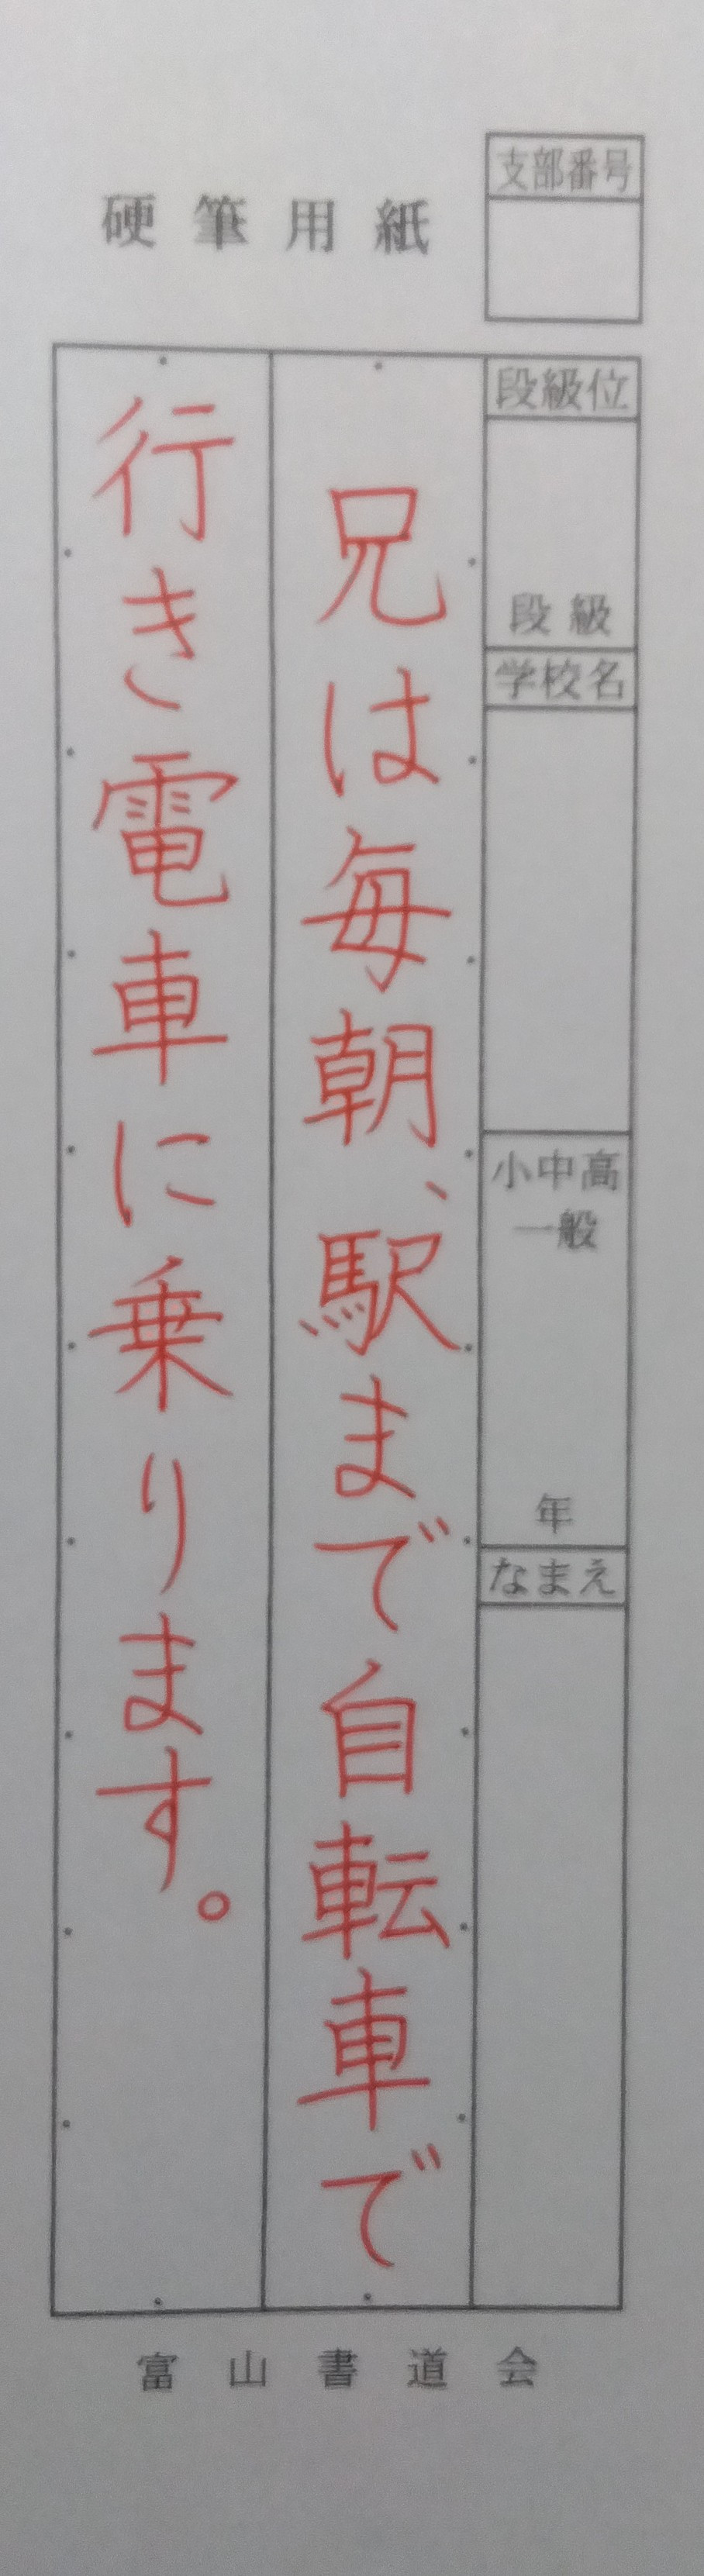 硬筆用紙
支部番号
段級位
段級
学校名
小中高
一般
年
なまえ
兄は毎朝、駅まで自転車で
行き電車に乗ります。
富山書道会